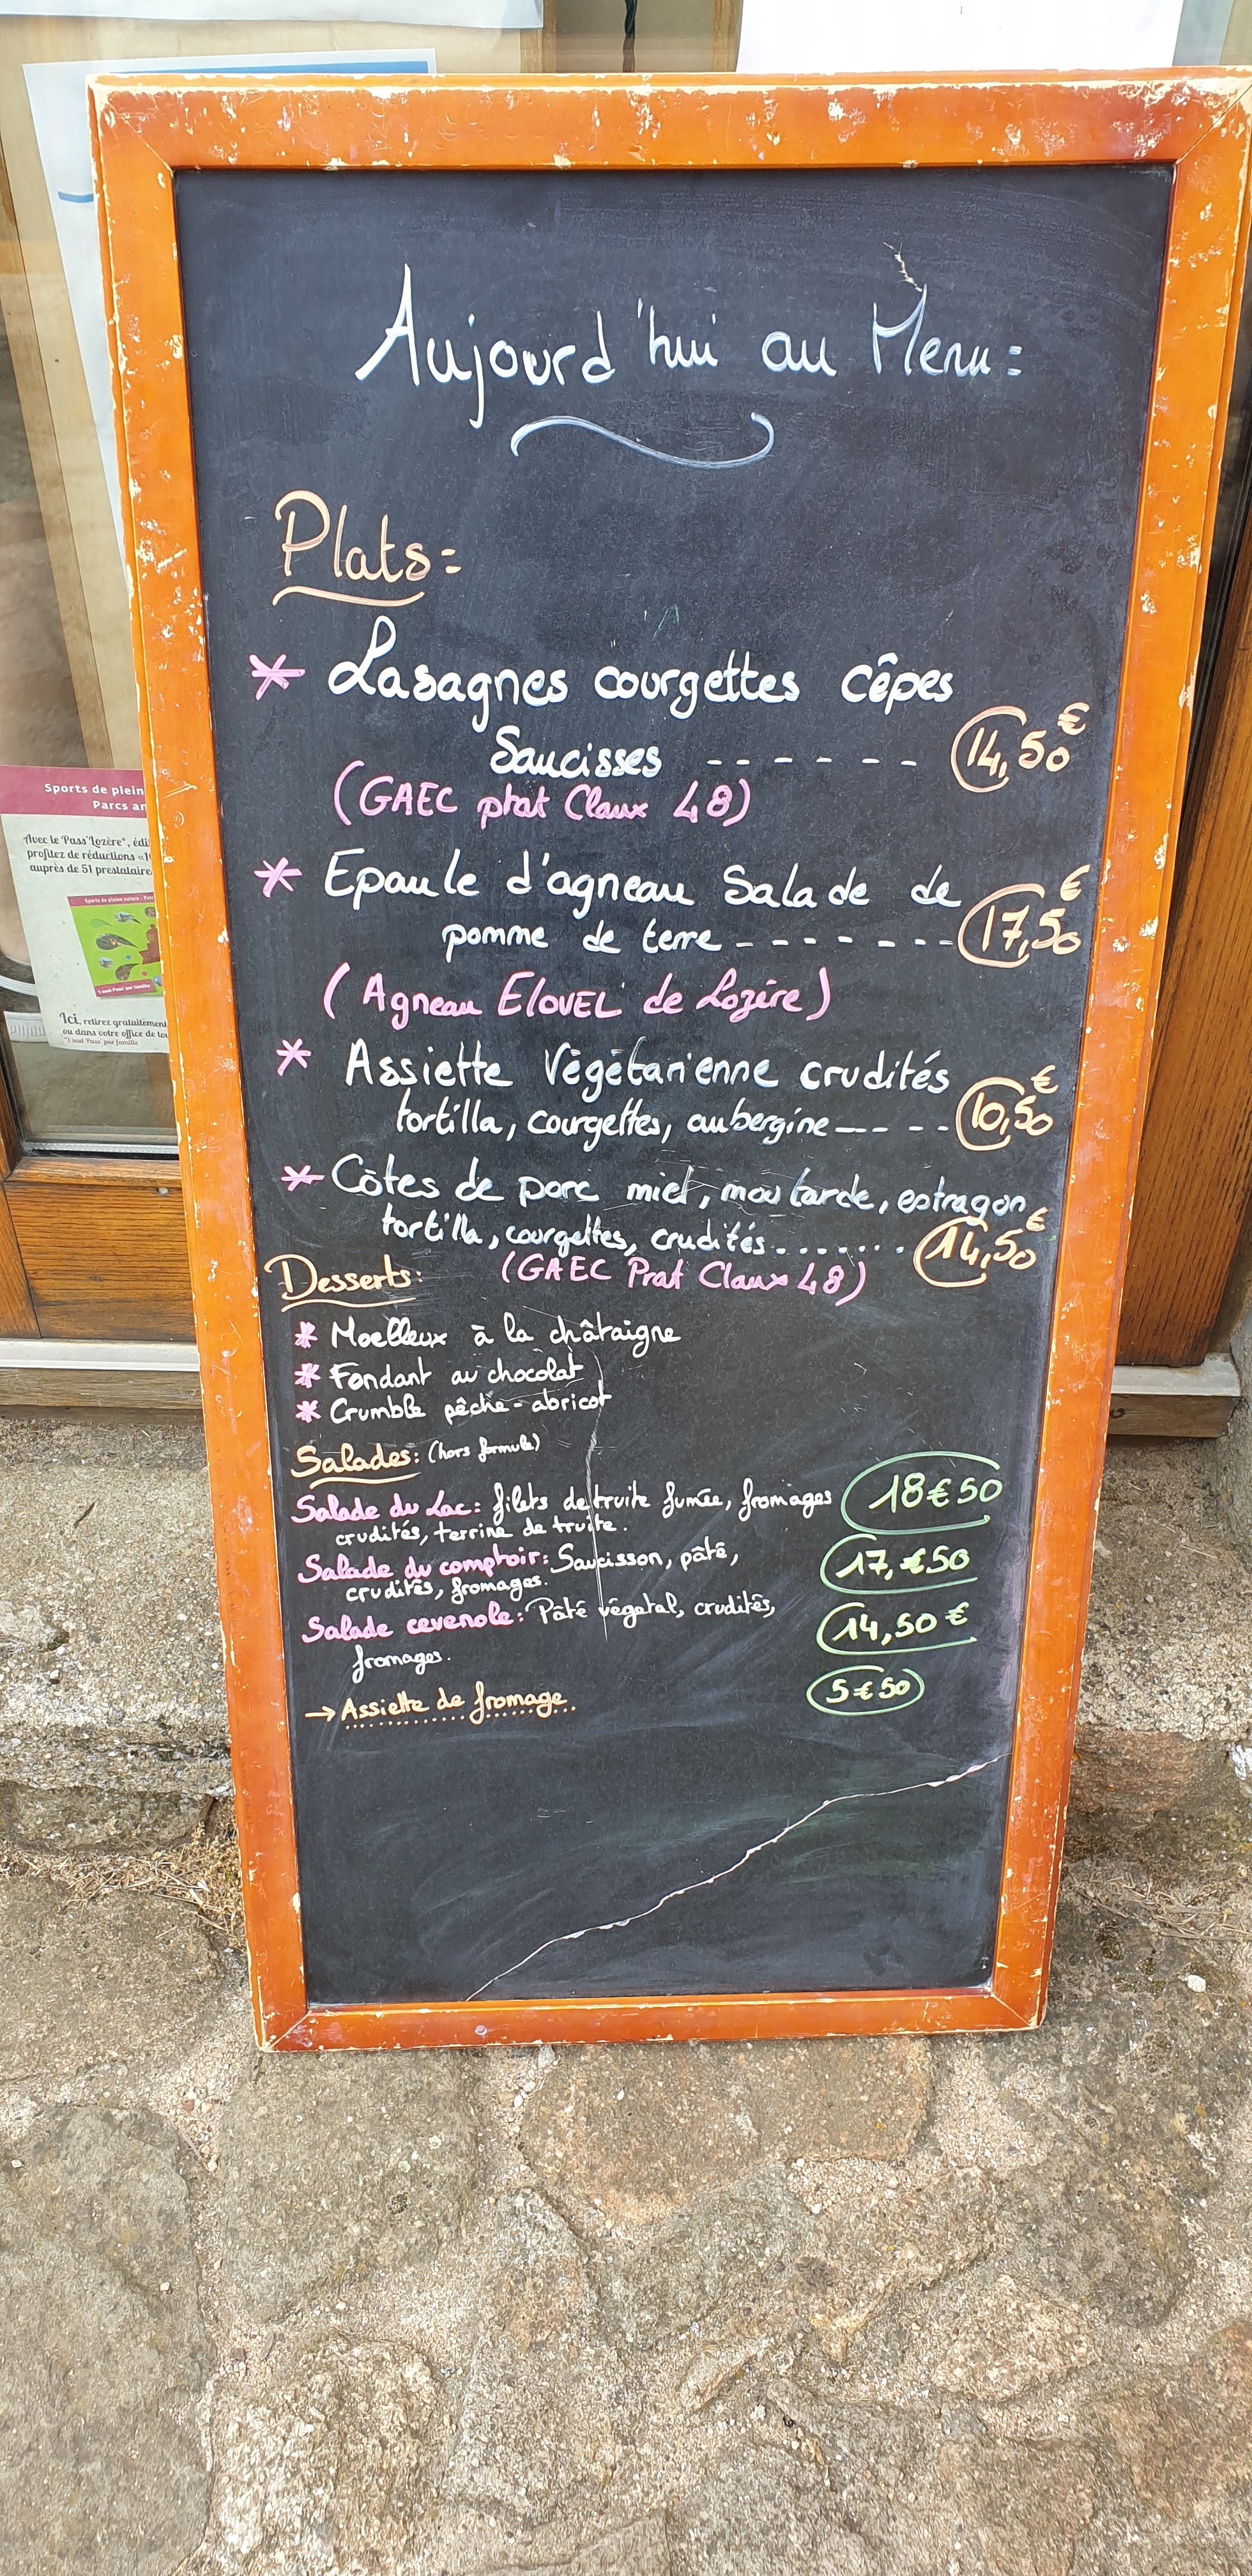 Aujourd'hui au Menu=
Plats=
* Lasagnes courgettes cêpes
Saucisses ------ 14,50€
(GAEC prat Claux 48)
* Epaule d'agneau Salade de
pomme de terre ------- 17,50€
(Agneau ELOVEL de Lozère)
* Assiette Végétarienne crudités
tortilla, courgettes, aubergine---- 10,50€
* Côtes de porc miel, moutarde, estragon
tortilla, courgettes, crudités....... 14,50€
(GAEC Prat Claux 48)
Desserts:
* Moelleux à la châtaigne
* Fondant au chocolat
* Crumble pêche-abricot
Salades: (hors formule)
Salade du Lac: filets de truite fumée, fromages 18€50
crudités, terrine de truite.
Salade du comptoir: Saucisson, pâté, 17,€50
crudités, fromages.
Salade cevenole: Pâté végetal, crudités, 14,50€
fromages.
→ Assiette de fromage. 5€50
Sports de plein
Parcs an
Avec le Pass'Lozère*, édi
profitez de réductions
auprès de 51 prestataire
Ici, retirez gratuitement
ou dans votre office de to
*1 seul Pass' par famille